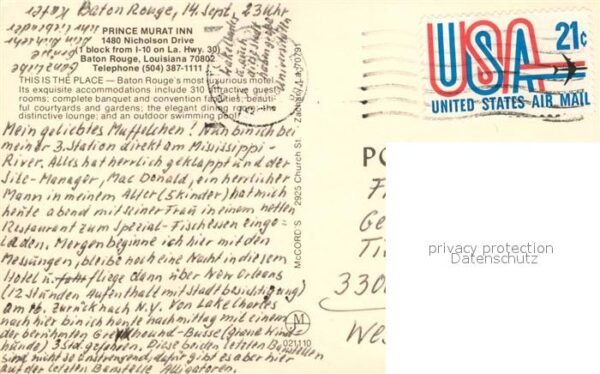 Baton Rouge, 14. Sept. 23 Uhr
PRINCE MURAT INN
1480 Nicholson Drive
(1 block from I-10 on La. Hwy. 30)
Baton Rouge, Louisiana 70802
Telephone (504) 387-1111
THIS IS THE PLACE — Baton Rouge's most luxurious motel.
Its exquisite accommodations include 310 attractive guest
rooms; complete banquet and convention facilities; beauti-
ful courtyards and gardens; the elegant dining room; the
distinctive lounge; and an outdoor swimming pool.
Mein geliebtes Muffelchen! Nun bin ich bei
meiner 3. Station direkt am Mississippi-
River. Alles hat herrlich geklappt und der
Site-Manager, Mac Donald, ein herrlicher
Mann in meinem Alter (5 Kinder) hat mich
heute abend mit seiner Frau in einem netten
Restaurant zum Spezial-Fischessen einge-
laden. Morgen beginne ich hier mit den
Messungen, bleibe noch eine Nacht in diesem
Hotel u. fliege dann über New Orleans
(12 Stunden Aufenthalt mit Stadtbesichtigung)
am 16. zurück nach N.Y. Von Lake Charles
nach hier bin ich heute nachmittag mit einem
der berühmten Greyhound-Busse (graue Hind-
hunde) 3 Std. gefahren. Diese beiden letzten Baustellen
sind nicht so anstrengend, dafür gibt es aber hier
auf der letzten Baustelle Alligatoren.
McCORD'S 2925 Church St. Zachary, La. 70791
M
021110
USA 21c
UNITED STATES AIR MAIL
PO
F
Ge
Ti
330
Wes
privacy protection
Datenschutz